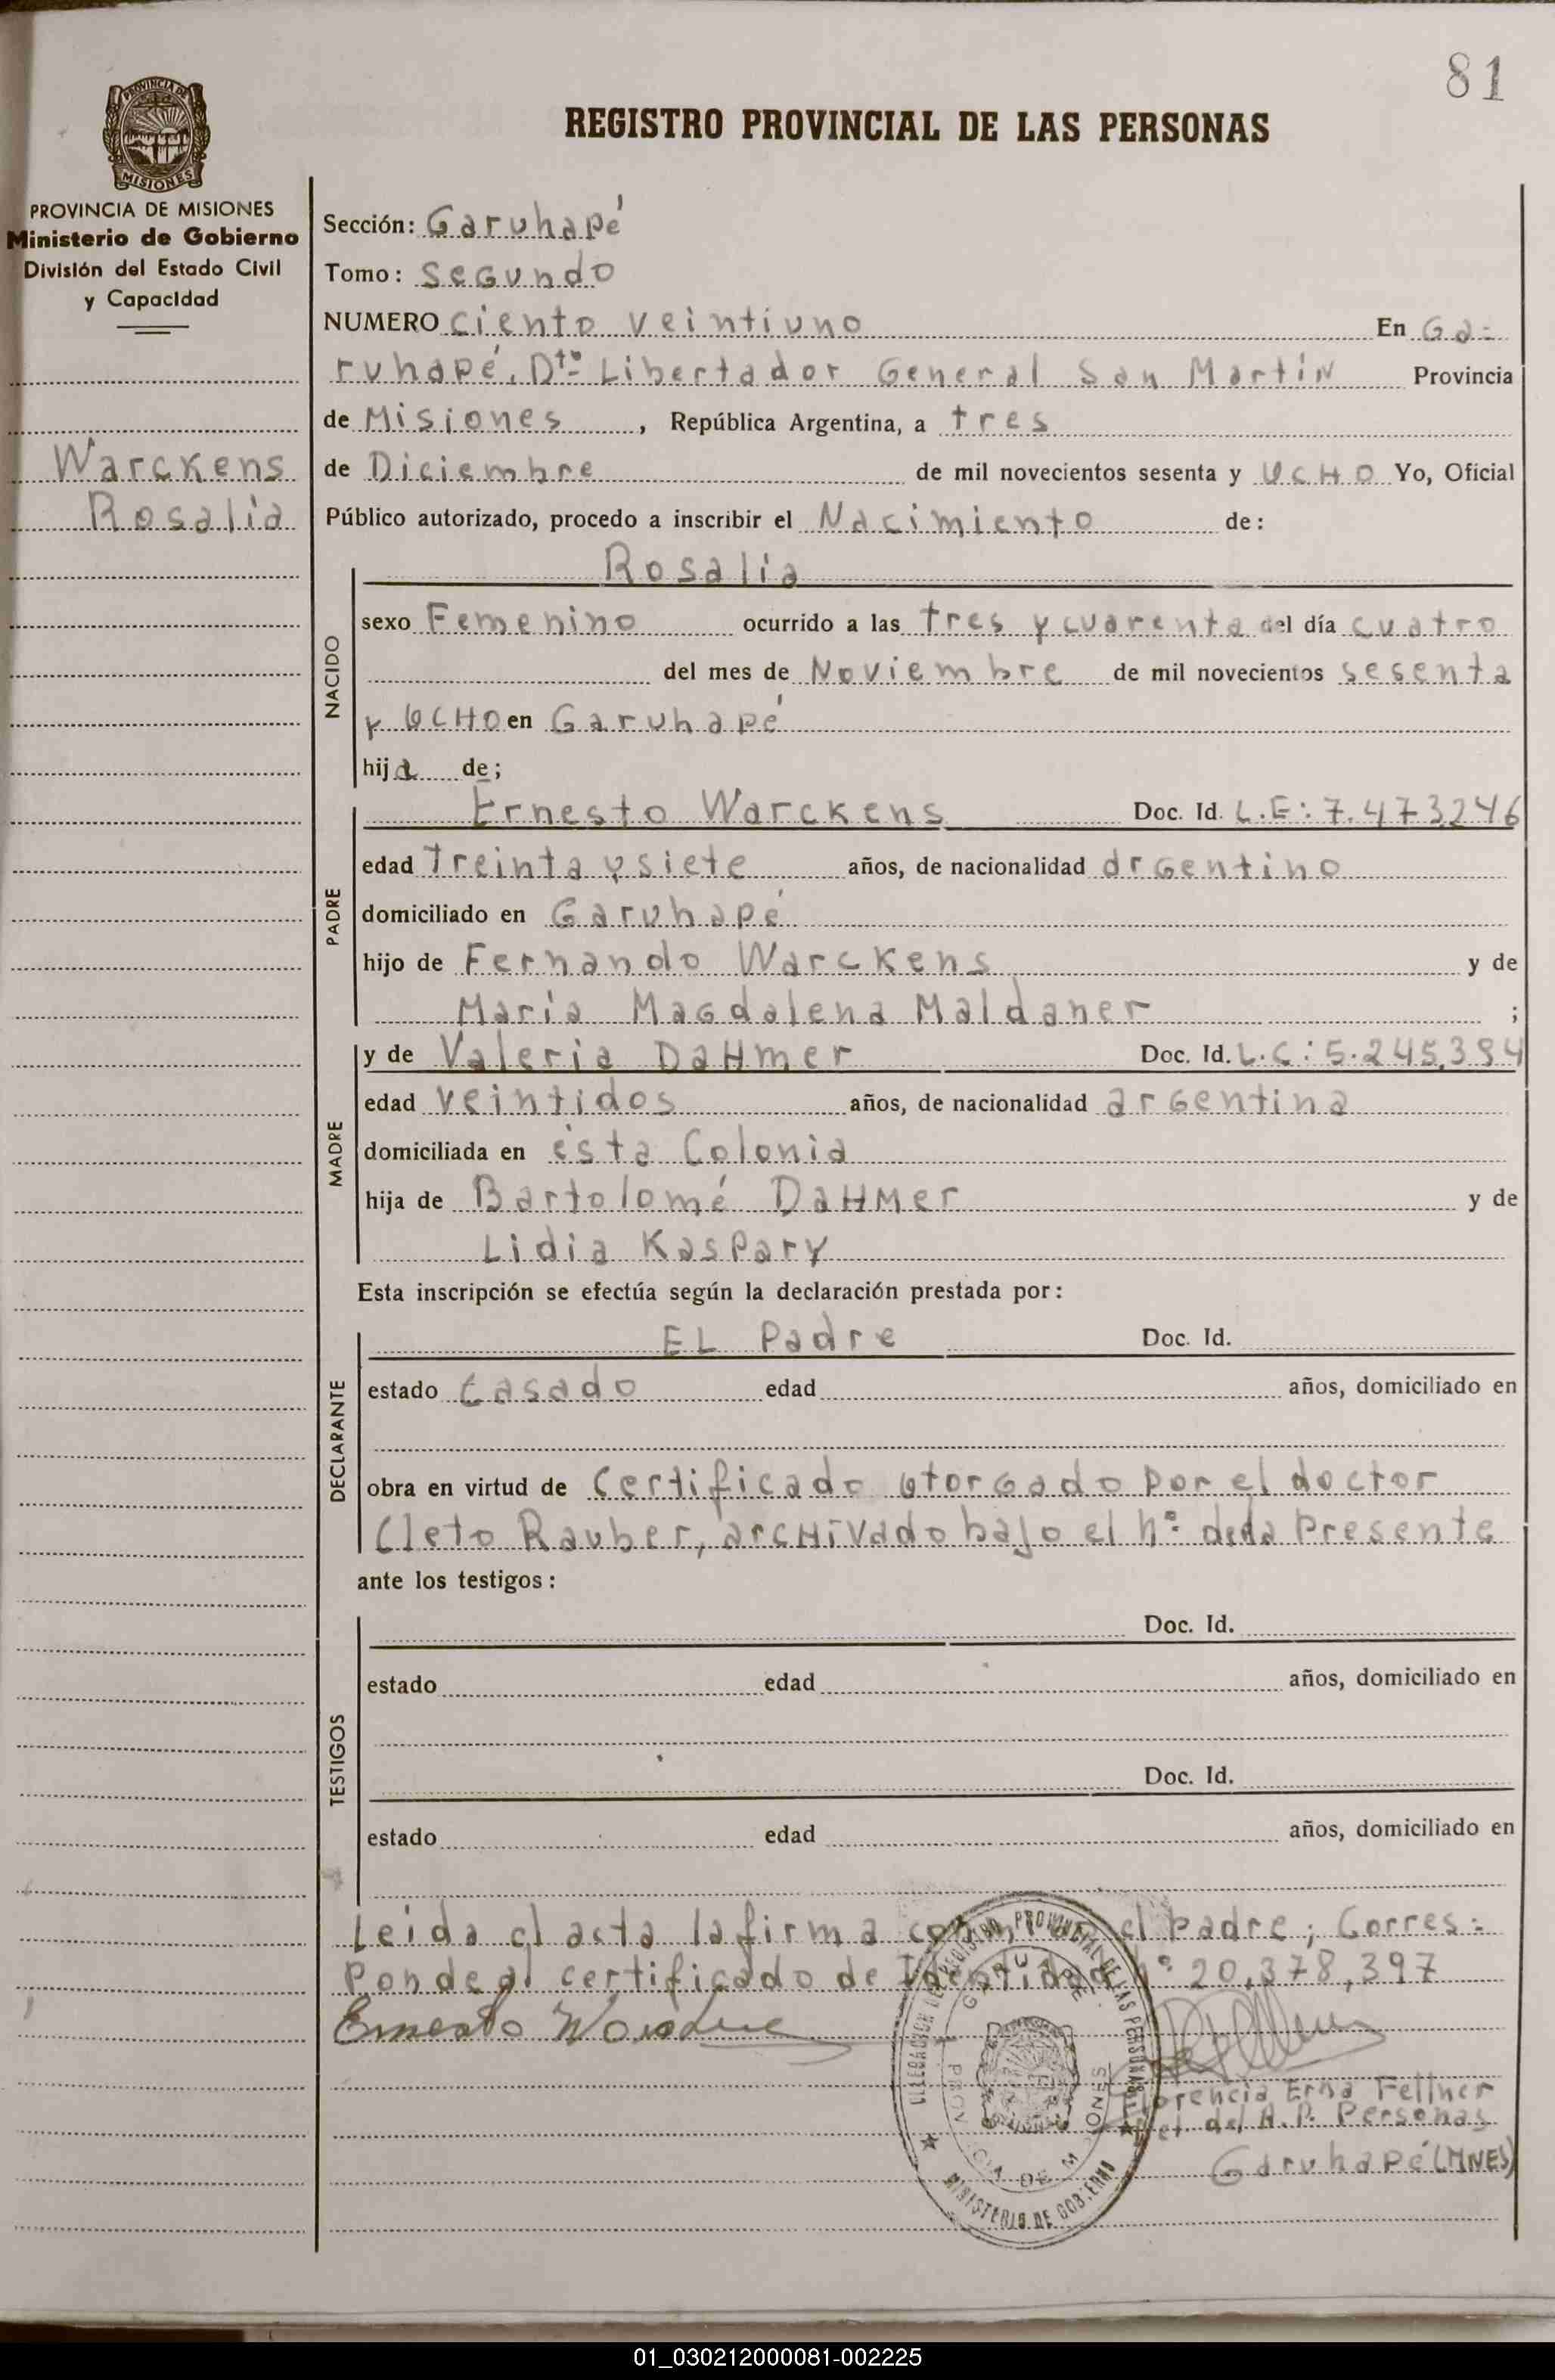 81
REGISTRO PROVINCIAL DE LAS PERSONAS
PROVINCIA DE
MISIONES
PROVINCIA DE MISIONES
Ministerio de Gobierno
División del Estado Civil
y Capacidad
Warckens
Rosalia
Sección: Garuhapé
Tomo: Segundo
NUMERO ciento veintiuno En Ga=
ruhapé, Dto= Libertador General San Martín Provincia
de Misiones, República Argentina, a tres
de Diciembre de mil novecientos sesenta y OCHO Yo, Oficial
Público autorizado, procedo a inscribir el Nacimiento de:
NACIDO
Rosalia
sexo Femenino ocurrido a las tres y cuarenta del día cuatro
del mes de Noviembre de mil novecientos sesenta
y OCHO en Garuhapé
hija de;
PADRE
Ernesto Warckens Doc. Id. L.E: 7.473246
edad Treinta y siete años, de nacionalidad argentino
domiciliado en Garuhapé
hijo de Fernando Warckens y de
Maria Magdalena Maldaner ;
MADRE
y de Valeria DaHmer Doc. Id. L.C: 5.245,394
edad veintidos años, de nacionalidad argentina
domiciliada en ésta Colonia
hija de Bartolomé DaHmer y de
Lidia Kaspary
Esta inscripción se efectúa según la declaración prestada por:
DECLARANTE
EL Padre Doc. Id.
estado Casado edad años, domiciliado en
obra en virtud de Certificado otorgado por el doctor
Cleto Rauber, arcHivado bajo el nº= de la Presente
ante los testigos:
TESTIGOS
Doc. Id.
estado edad años, domiciliado en
Doc. Id.
estado edad años, domiciliado en
Leida el acta la firma conmigo el padre; Corres=
ponde al certificado de Identidad Nº 20,378,397
Ernesto Warckens
DELEGACION DEL REGISTRO PROVINCIAL DE LAS PERSONAS
GARUHAPE
PROVINCIA DE MISIONES
MINISTERIO DE GOBIERNO
Florencia Erna Fellner
del R. P. Personas
Garuhapé (MNES)
01_030212000081-002225